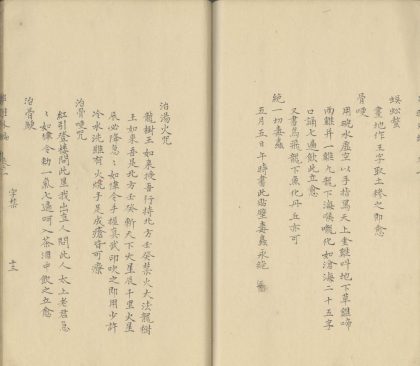 蜈蚣螫
畫地作王字取土摻之即愈
骨哽
用碗水虛空以手指寫天上金雞叫地下草雞啼
兩雞并一雞九龍下海喉嚨化如滄海二十五字
口誦七遍飲此立愈
又書鳥飛龍下魚化丹丘亦可
絕一切毒蟲
五月五日午時書此貼壁毒蟲永絕
治湯火咒
龍樹王如來授吾行持北方壬癸禁火大法龍樹
王如來吾是北方壬癸水斬天下火星辰千里火星
辰必降急急如律令手握真武印吹之即用少許
冷水洗雖有火燒手足成瘡皆可療
治骨哽咒
紅引登樓問此是我出直人問此人太上老君急
急如律令勅一氣七遍呵入茶酒中飲之立愈
治骨鯁
字禁
十三